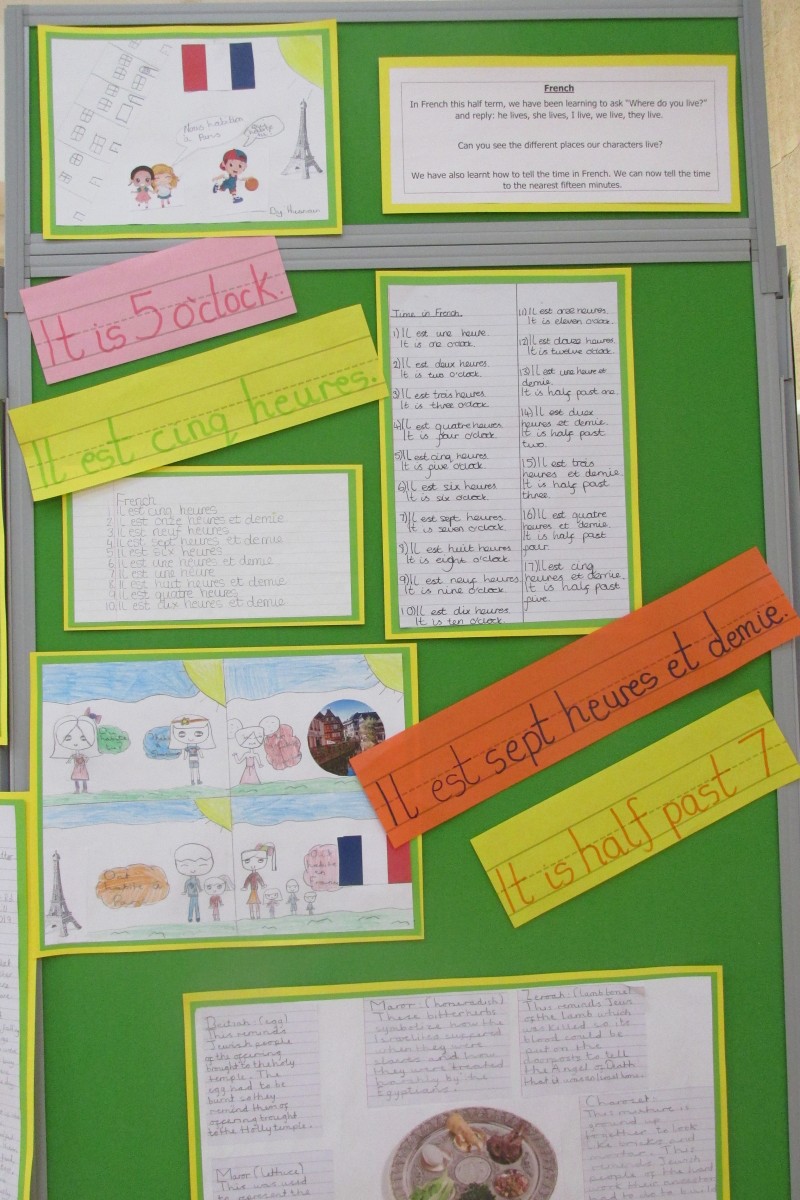 Nous habitons
à Paris
French
In French this half term, we have been learning to ask "Where do you live?"
and reply: he lives, she lives, I live, we live, they live.
Can you see the different places our characters live?
We have also learnt how to tell the time in French. We can now tell the time
to the nearest fifteen minutes.
It is 5 o'clock.
Il est cinq heures.
French
1 Il est cinq heures
2 Il est onze heures et demie
3 Il est neuf heures
4 Il est sept heures et demie
5 Il est six heures
6 Il est une heures et demie
7 Il est une heure
8 Il est huit heures et demie
9 Il est quatre heures
10 Il est dix heures et demie
Time in French.
1) Il est une heure.
It is one o'clock.
2) Il est deux heures.
It is two o'clock.
3) Il est trois heures
It is three o'clock.
4) Il est quatre heures.
It is four o'clock.
5) Il est cinq heures.
It is five o'clock.
6) Il est six heures.
It is six o'clock.
7) Il est sept heures.
It is seven o'clock.
8) Il est huit heures.
It is eight o'clock.
9) Il est neuf heures.
It is nine o'clock.
10) Il est dix heures.
It is ten o'clock.
11) Il est onze heures.
It is eleven o'clock.
12) Il est douze heures.
It is twelve o'clock.
13) Il est une heure et
demie.
It is half past one.
14) Il est duex
heures et demie.
It is half past
two.
15) Il est trois
heures et demie.
It is half past
three.
16) Il est quatre
heures et demie.
It is half past
four.
17) Il est cinq
heures et demie.
It is half past
five.
Il est sept heures et demie.
It is half past 7
Beitzah: (egg)
This reminds
Jewish people
of the offering
brought to the holy
temple. The
egg had to be
burnt so they
remind them of
offering brought
to the Holly temple.
Maror: (horseradish)
These bitter herbs
symbolize how the
Israelites suffered
when they were
slaves and how
they were treated
harshly by the
Egyptians.
Zeroah: (lamb bone)
This reminds Jews
of the Lamb which
was killed so its
blood could be
put on the
doorposts to tell
the Angel of Death
Charoset:
This mixture is
ground up
together to look
like bricks and
mortar. This
reminds Jewish
people of the hard
Maror (lettuce)
This was used
to represent the